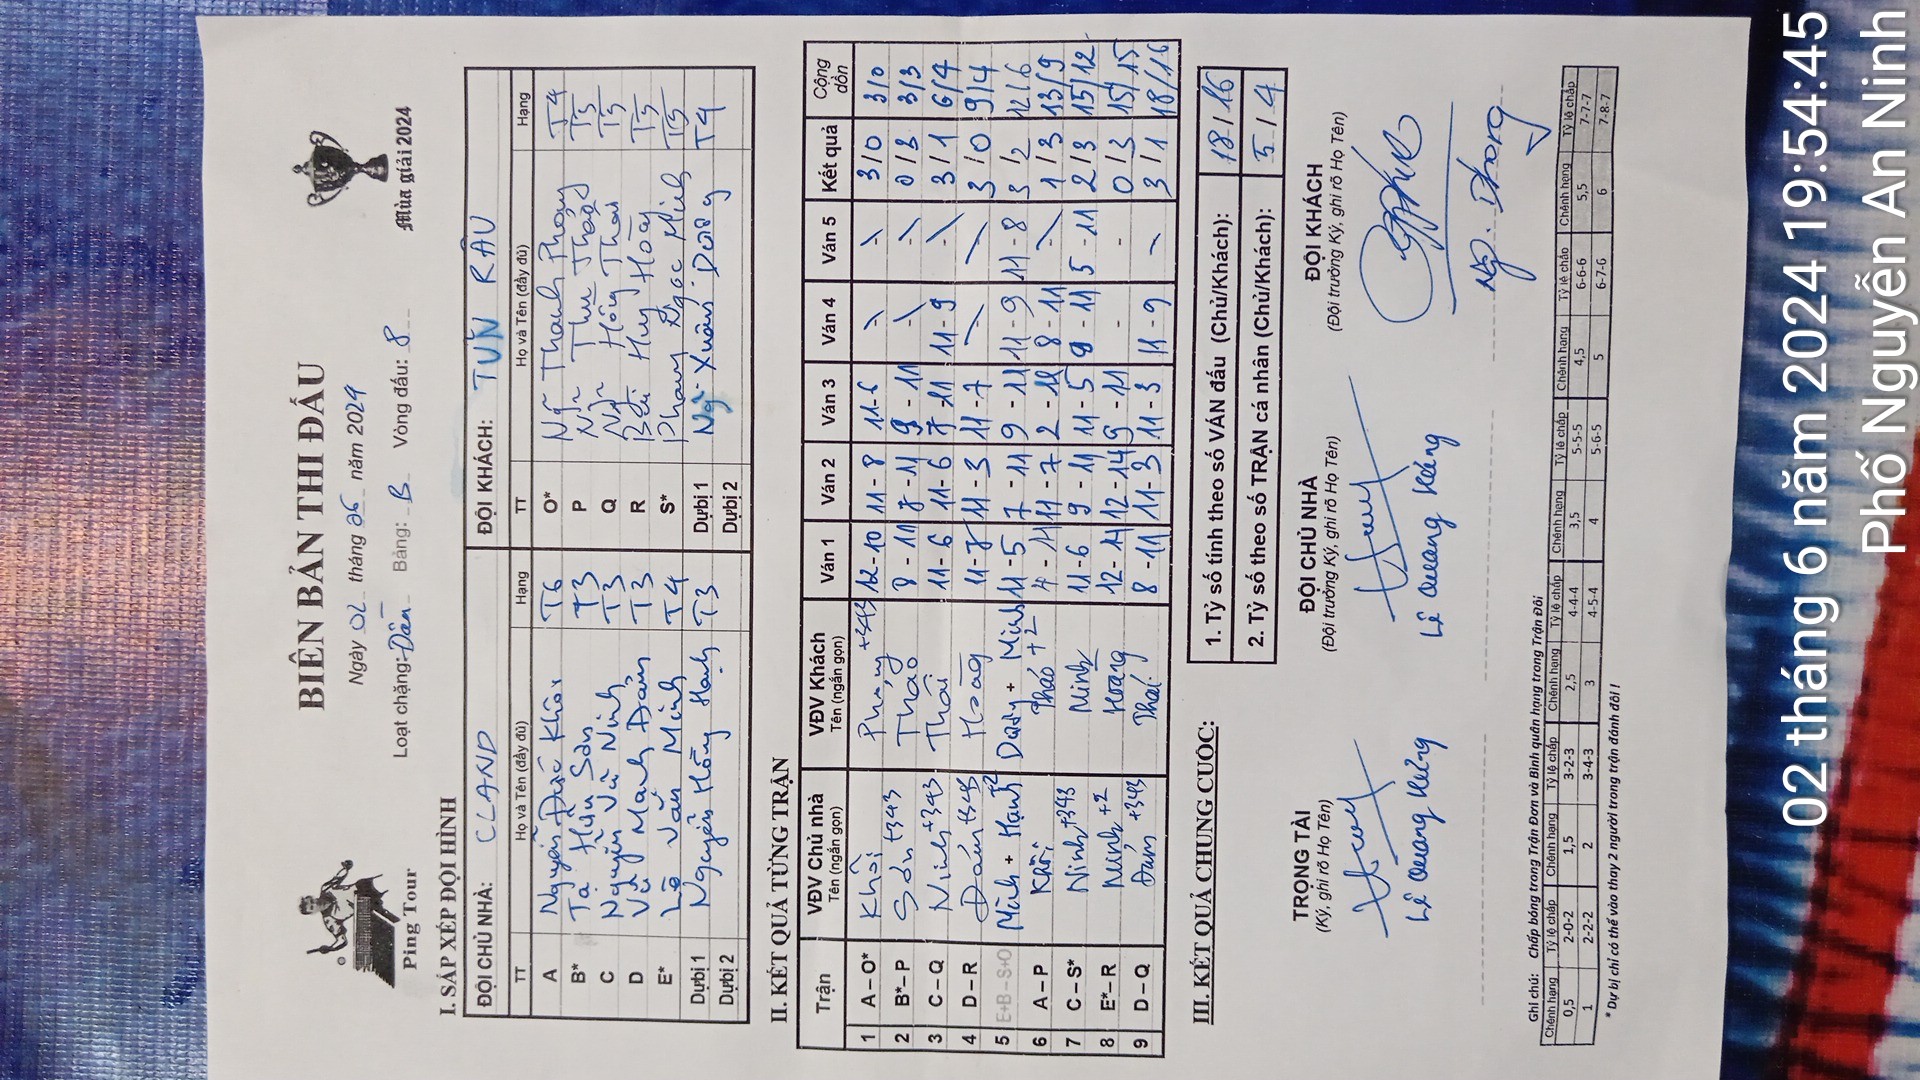 BIÊN BẢN THI ĐẤU
Ping Tour
Mùa giải 2024
Ngày 02 tháng 06 năm 2024
Loạt chặng: Dân Bảng: B Vòng đấu: 8
I. SẮP XẾP ĐỘI HÌNH
ĐỘI CHỦ NHÀ: CLAND ĐỘI KHÁCH: TUẤN RÂU
TT Họ và Tên (đầy đủ) Hạng TT Họ và Tên (đầy đủ) Hạng
A Nguyễn Đức Khôi T6 O* Ng Thanh Phong T4
B* Tạ Hữu Sơn T3 P Ng Thu Thảo T5
C Nguyễn Vũ Ninh T3 Q Ng Hồng Thái T5
D Vũ Mạnh Đoán T3 R Bùi Huy Hoàng T5
E* Lê Văn Minh T4 S* Phạm Ngọc Minh T5
Dự bị 1 Nguyễn Hồng Hạnh T3 Dự bị 1 Ng Xuân Dương T4
Dự bị 2 Dự bị 2
II. KẾT QUẢ TỪNG TRẬN
Trận VĐV Chủ nhà Tên (ngắn gọn) VĐV Khách Tên (ngắn gọn) Ván 1 Ván 2 Ván 3 Ván 4 Ván 5 Kết quả Cộng dồn
1 A – O* Khôi Phong +343 12-10 11-8 11-6 - - 3/0 3/0
2 B*– P Sơn +343 Thảo 8-11 8-11 9-11 - - 0/3 3/3
3 C – Q Ninh +343 Thái 11-6 11-6 7-11 11-9 - 3/1 6/4
4 D – R Đoán +343 Hoàng 11-8 11-3 11-7 - - 3/0 9/4
5 E+B – S+O Minh + Hạnh +2 Dương + Minh 11-5 7-11 9-11 11-9 11-8 3/2 12/6
6 A – P Khôi Thảo +2 4-11 11-7 2-11 8-11 - 1/3 13/9
7 C – S* Ninh +343 Minh 11-6 9-11 11-5 9-11 5-11 2/3 15/12
8 E*– R Minh +2 Hoàng 12-14 12-14 9-11 - - 0/3 15/15
9 D – Q Đoán +343 Thái 8-11 11-3 11-3 11-9 - 3/1 18/16
III. KẾT QUẢ CHUNG CUỘC:
1. Tỷ số tính theo số VÁN đấu (Chủ/Khách): 18/16
2. Tỷ số theo số TRẬN cá nhân (Chủ/Khách): 5/4
TRỌNG TÀI ĐỘI CHỦ NHÀ ĐỘI KHÁCH
(Ký, ghi rõ Họ Tên) (Đội trưởng Ký, ghi rõ Họ Tên) (Đội trưởng Ký, ghi rõ Họ Tên)
Lê Quang Hưng Lê Quang Ng. Phong
Ghi chú: Chấp bóng trong Trận Đơn và Bình quân hạng trong Trận Đôi
Chênh hạng Tỷ lệ chấp Chênh hạng Tỷ lệ chấp Chênh hạng Tỷ lệ chấp Chênh hạng Tỷ lệ chấp Chênh hạng Tỷ lệ chấp Chênh hạng Tỷ lệ chấp
0,5 2-0-2 1,5 3-2-3 2,5 4-4-4 3,5 5-5-5 4,5 6-6-6 5,5 7-7-7
1 2-2-2 2 3-4-3 3 4-5-4 4 5-6-5 5 6-7-6 6 7-8-7
* Dự bị chỉ có thể vào thay 2 người trong trận đánh đôi !
02 tháng 6 năm 2024 19:54:45
Phố Nguyễn An Ninh